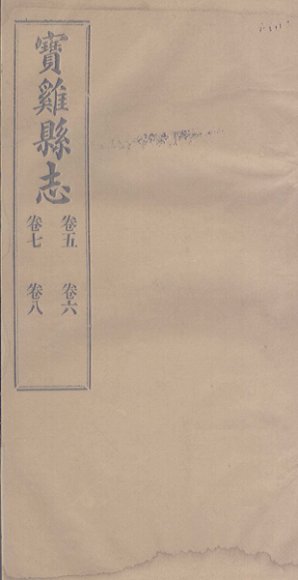 寶雞縣志
卷五 卷六
卷七 卷八